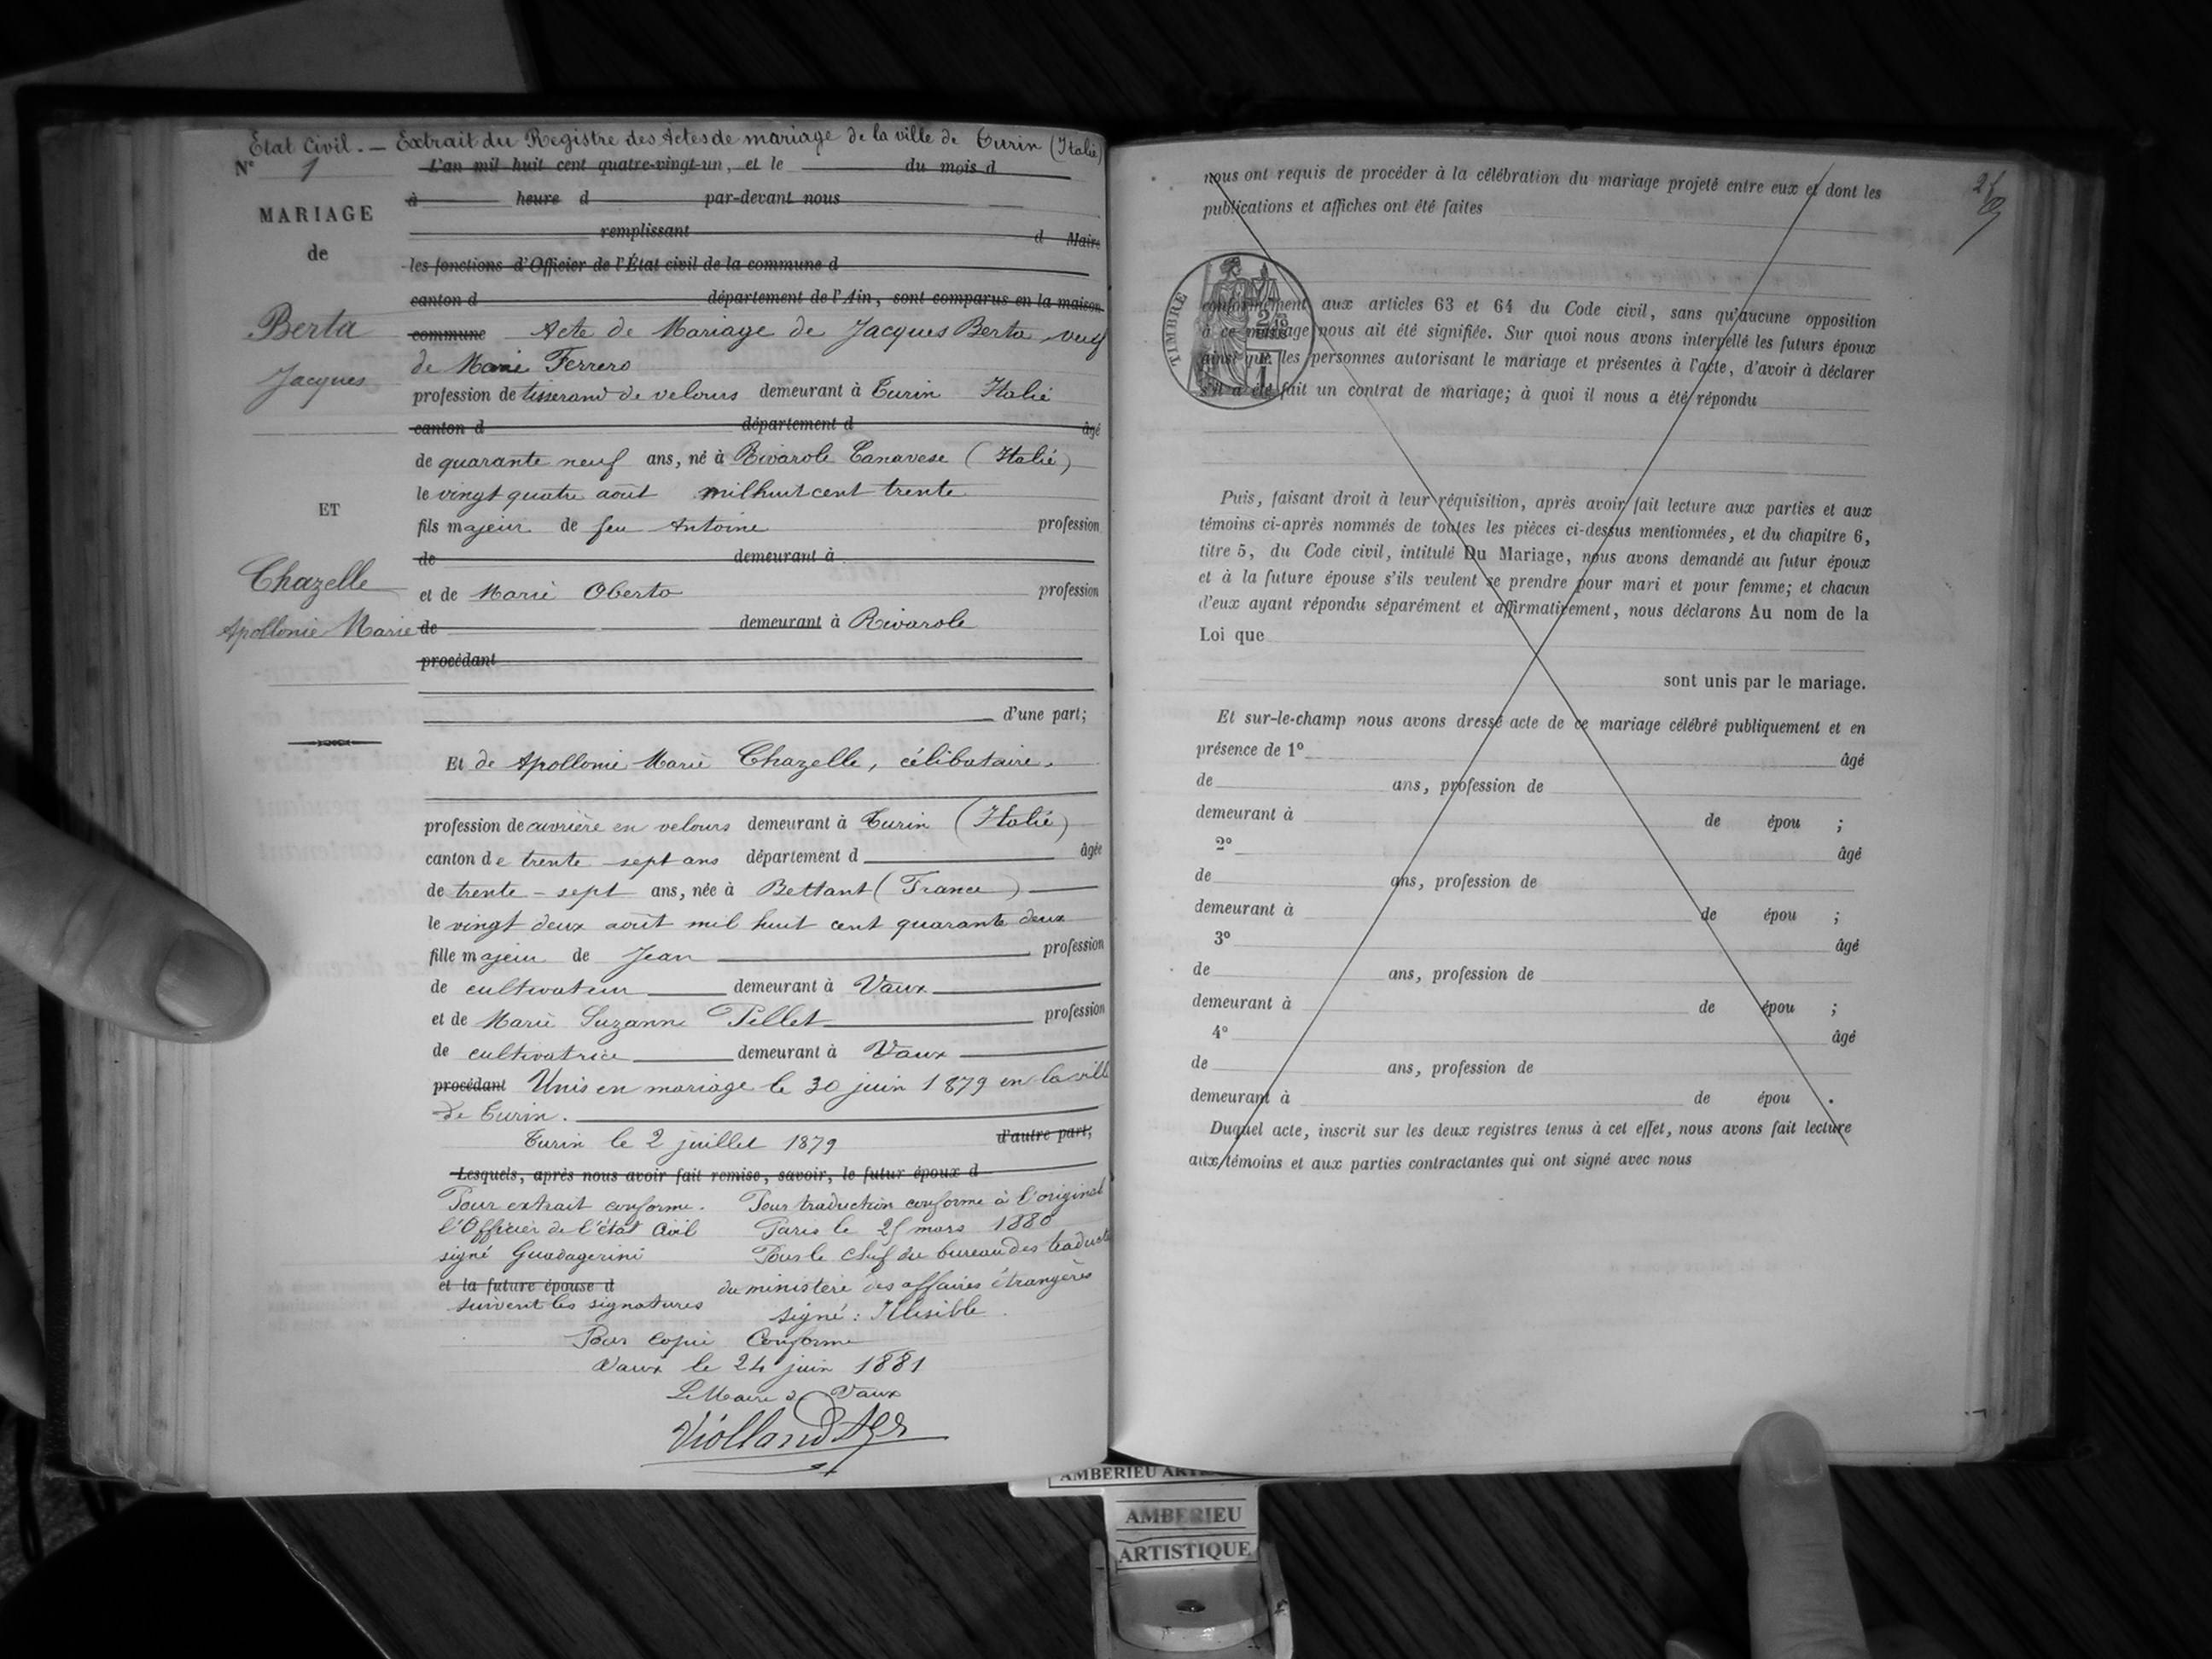 Etat Civil. — Extrait du Registre des Actes de mariage de la ville de Turin (Italie)
N° 1 L'an mil huit cent quatre-vingt-un, et le du mois d
à heure d par-devant nous
MARIAGE
remplissant d Maire
de
les fonctions d'Officier de l'État civil de la commune d
canton d département de l'Ain, sont comparus en la maison
Berta
commune Acte de Mariage de Jacques Berta veuf
de Marie Ferrero
Jacques
profession de tisserand de velours demeurant à Turin Italie
canton d département d âgé
de quarante neuf ans, né à Rivarole Canavese (Italie)
le vingt quatre août mil huit cent trente
ET
fils majeur de feu Antoine profession
de demeurant à
Chazelle
et de Marie Oberto profession
Apollonie Marie
de demeurant à Rivarole
procédant
d'une part;
Et de Apollonie Marie Chazelle, célibataire.
profession de ouvrière en velours demeurant à Turin (Italie)
canton de trente sept ans département d âgée
de trente-sept ans, née à Bettant (France)
le vingt deux août mil huit cent quarante deux
fille majeur de Jean profession
de cultivateur demeurant à Vaux
et de Marie Suzanne Pellet profession
de cultivatrice demeurant à Vaux
procédant Unis en mariage le 30 juin 1879 en la ville
de Turin.
Turin le 2 juillet 1879 d'autre part;
Lesquels, après nous avoir fait remise, savoir, le futur époux d
Pour extrait conforme. Pour traduction conforme à l'original
l'Officier de l'état Civil Paris le 25 mars 1880
signé Guadagerini Pour le chef du bureau des traduct
et la future épouse d du ministère des affaires étrangères
suivent les signatures signé: Illisible
Pour Copie Conforme
Vaux le 24 juin 1881
Le Maire de Vaux
Violland
nous ont requis de procéder à la célébration du mariage projeté entre eux et dont les
publications et affiches ont été faites
TIMBRE
conformément aux articles 63 et 64 du Code civil, sans qu'aucune opposition
à ce mariage nous ait été signifiée. Sur quoi nous avons interpellé les futurs époux
ainsi que les personnes autorisant le mariage et présentes à l'acte, d'avoir à déclarer
s'il a été fait un contrat de mariage; à quoi il nous a été répondu
Puis, faisant droit à leur réquisition, après avoir fait lecture aux parties et aux
témoins ci-après nommés de toutes les pièces ci-dessus mentionnées, et du chapitre 6,
titre 5, du Code civil, intitulé Du Mariage, nous avons demandé au futur époux
et à la future épouse s'ils veulent se prendre pour mari et pour femme; et chacun
d'eux ayant répondu séparément et affirmativement, nous déclarons Au nom de la
Loi que
sont unis par le mariage.
Et sur-le-champ nous avons dressé acte de ce mariage célébré publiquement et en
présence de 1° âgé
de ans, profession de
demeurant à de épou ;
2° âgé
de ans, profession de
demeurant à de épou ;
3° âgé
de ans, profession de
demeurant à de épou ;
4° âgé
de ans, profession de
demeurant à de épou .
Duquel acte, inscrit sur les deux registres tenus à cet effet, nous avons fait lecture
aux témoins et aux parties contractantes qui ont signé avec nous
AMBERIEU
AMBERIEU
ARTISTIQUE